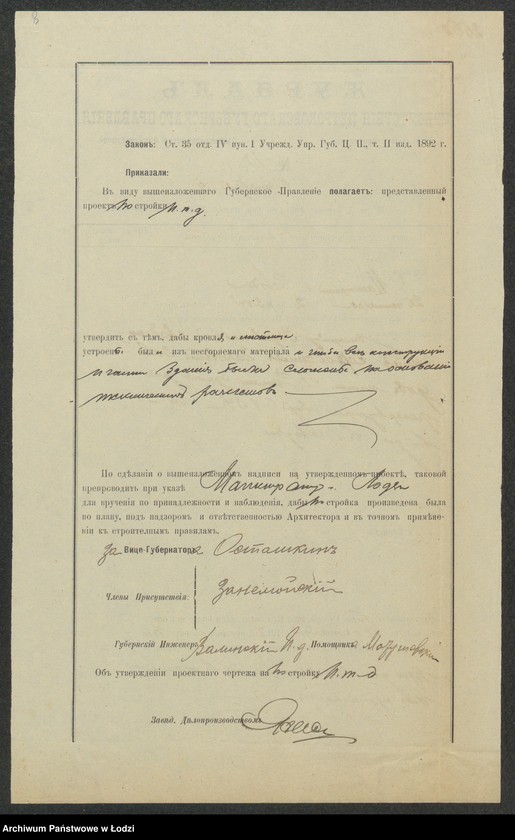 8
Законъ: Ст. 35 отд. IV пун. 1 Учрежд. Упр. Губ. Ц. П., т. II изд. 1892 г.
Приказали:
Въ виду вышеизложеннаго Губернское Правленіе полагаетъ: представленный
проектъ по стройки и т. д.
утвердить съ тѣмъ, дабы кровля и лестница
устроены были изъ несгораемаго матеріала и чтобы всѣ конструкціи
и части зданія были сложены на основаніи
техническихъ расчетовъ
По сдѣланіи о вышеизложенномъ надписи на утвержденномъ проектѣ, таковой
препроводить при указѣ Магистрату г. Лодзи
для врученія по принадлежности и наблюденія, дабы постройка произведена была
по плану, подъ надзоромъ и отвѣтственностью Архитектора и въ точномъ примѣне-
ніи къ строителнымъ правиламъ.
За Вице-Губернатора Осташкинъ
Члены Присутствія:
Губернскій Инженеръ И. д. Помощника
Объ утвержденіи проектнаго чертежа на по стройку и т. д
Завѣд. Дѣлопроизводствомъ
Archiwum Państwowe w Łodzi